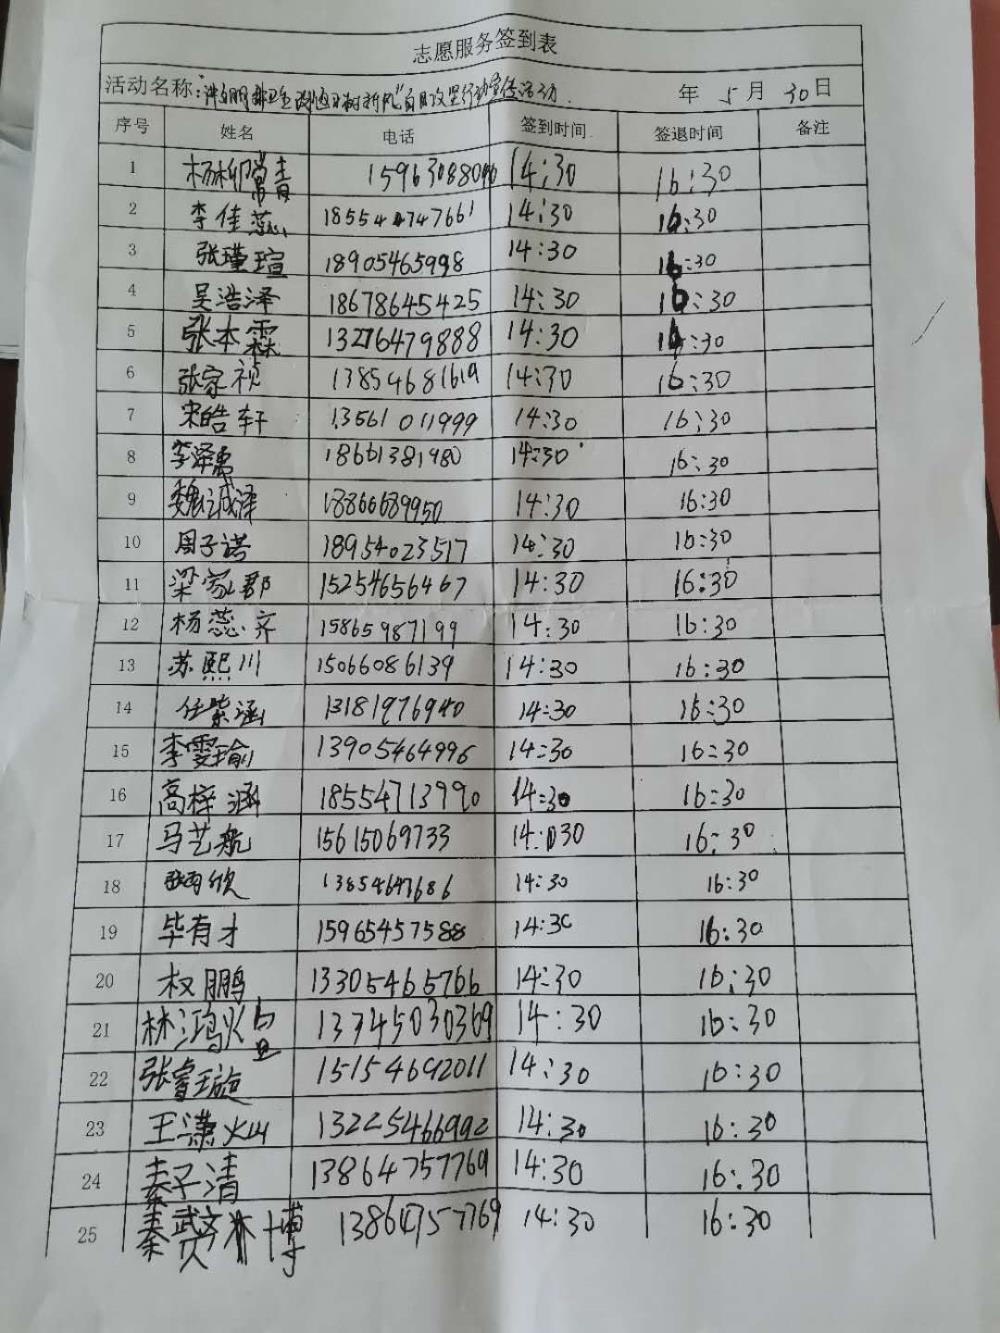 志愿服务签到表
活动名称: 讲文明 讲卫生 改陋习 树新风"百日攻坚行动宣传活动 年 5月 30日
序号 姓名 电话 签到时间 签退时间 备注
1 杨柳常青 15963088040 14:30 16:30
2 李佳蕊 18554747661 14:30 16:30
3 张瑾瑄 18905465998 14:30 16:30
4 吴浩泽 18678645425 14:30 16:30
5 张本霖 13276479888 14:30 16:30
6 张家祯 13854681619 14:30 16:30
7 宋皓轩 13561011999 14:30 16:30
8 李泽惠 18661381980 14:30 16:30
9 魏诚泽 18866689950 14:30 16:30
10 周子诺 18954023517 14:30 16:30
11 梁家郡 15254656467 14:30 16:30
12 杨蕊齐 15865987199 14:30 16:30
13 苏熙川 15066086139 14:30 16:30
14 任紫涵 13181976940 14:30 16:30
15 李雯瑜 13905464996 14:30 16:30
16 高梓涵 18554713990 14:30 16:30
17 马艺航 15615069733 14:30 16:30
18 13854647686 14:30 16:30
19 毕有才 15965457588 14:30 16:30
20 权鹏 13305465766 14:30 16:30
21 林鸿煊 13745030369 14:30 16:30
22 张睿璇 15154692011 14:30 16:30
23 王潇灿 13225466992 14:30 16:30
24 秦子清 13864757769 14:30 16:30
25 秦赟博 13864757769 14:30 16:30